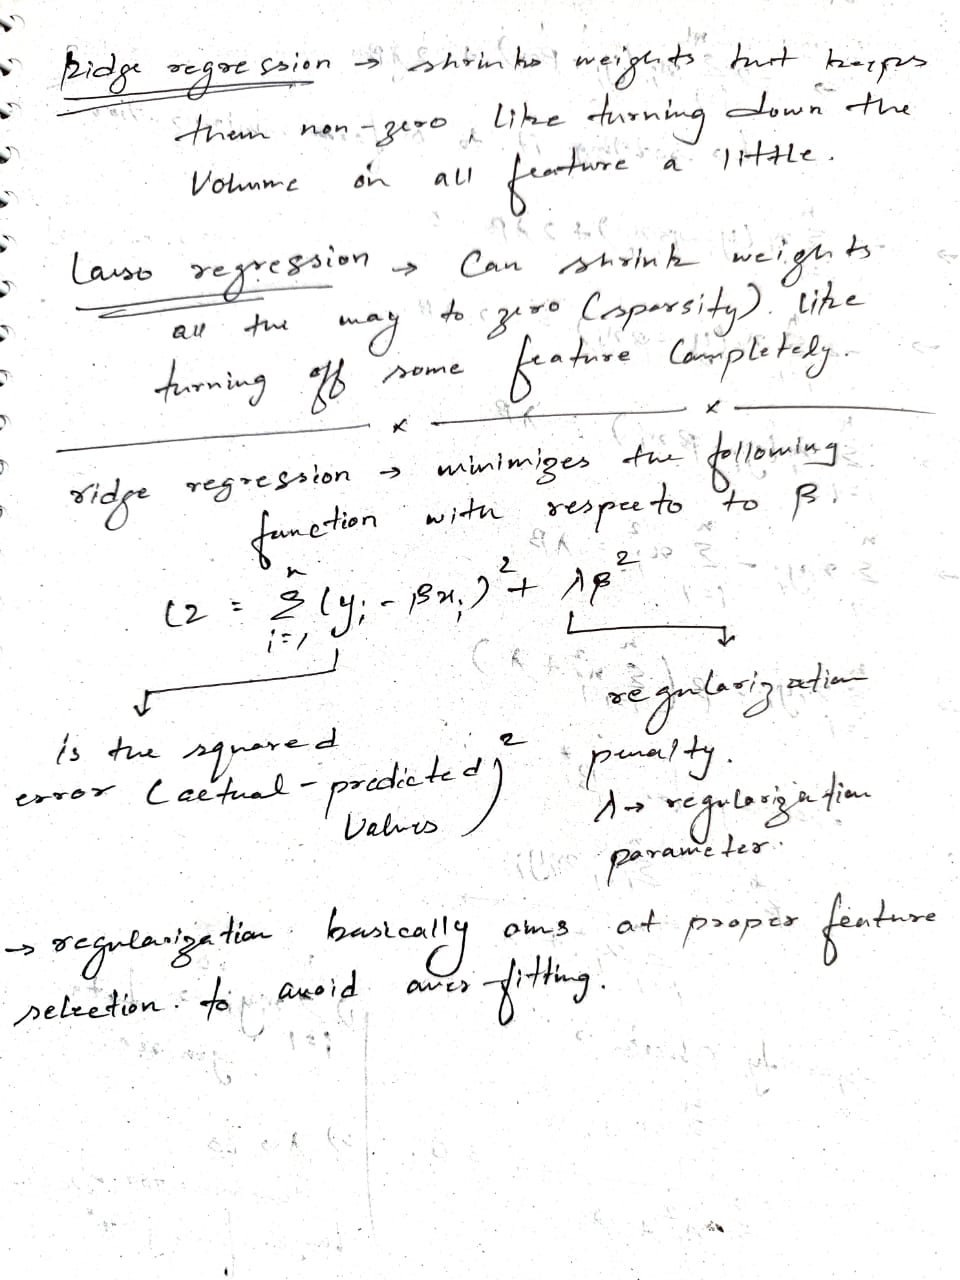 Ridge regression → shrinks weights but keeps
them non-zero, like turning down the
Volume on all feature a little.
Lasso regression → Can shrink weights
all the way to zero (sparsity). like
turning off some feature Completely.
x x
ridge regression → minimizes the following
function with respect to β.
L2 = Σ (y_i - βx_i)² + λβ²
n
i=1
is the squared
error (actual - predicted Values)²
regularization
penalty.
λ → regularization
parameter.
→ regularization basically aims at proper feature
selection. to avoid over-fitting.